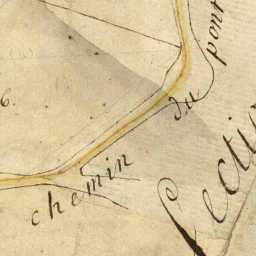 6.
chemin du pont
Secti